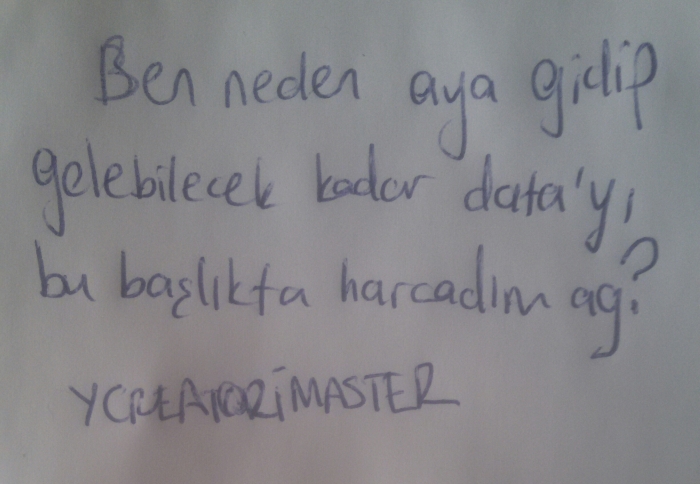 Ben neden aya gidip
gelebilecek kadar data'yı,
bu başlıkta harcadım aq?
YCREATORİMASTER